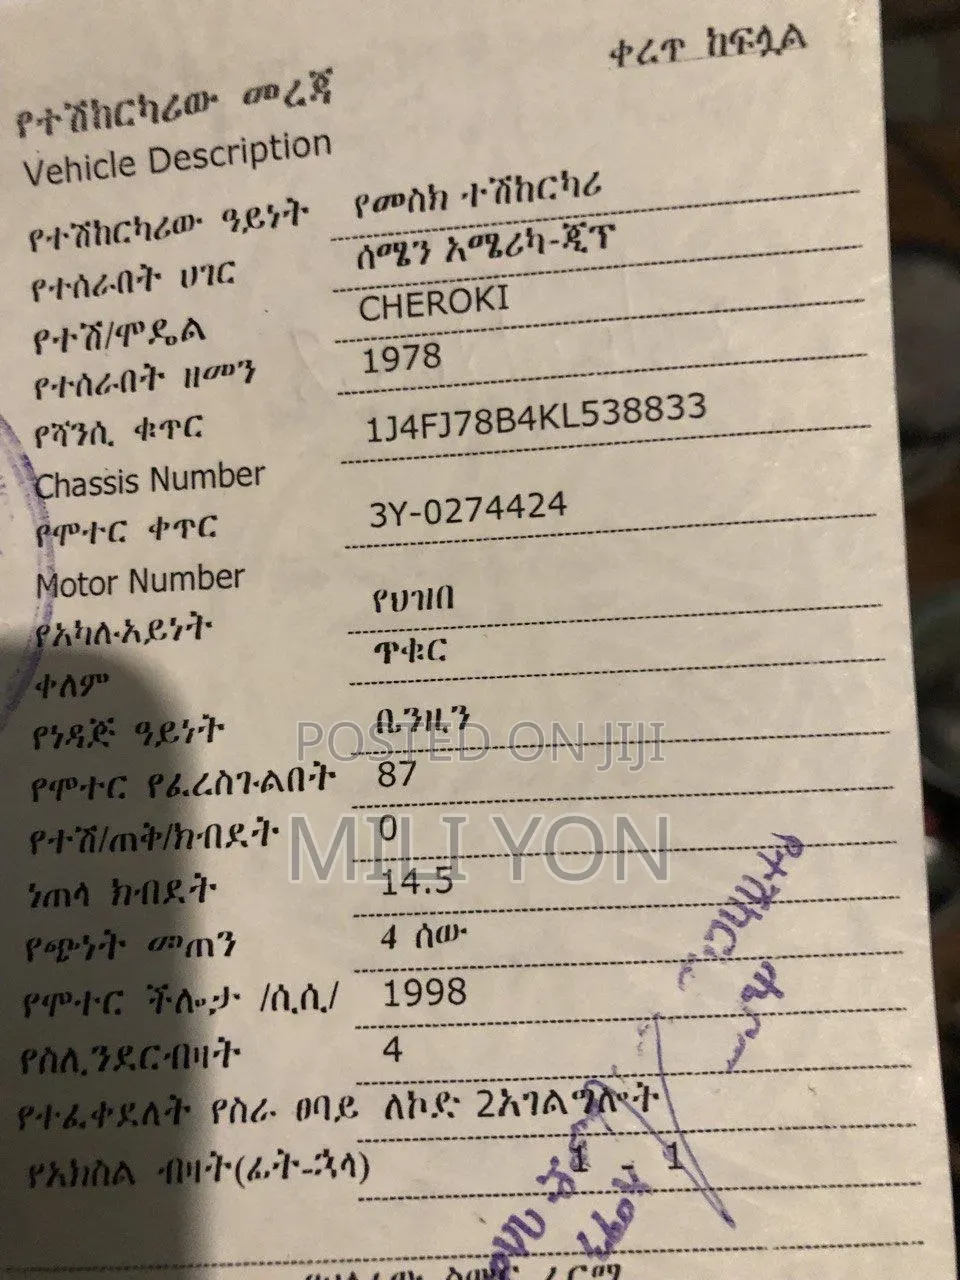 ቀረጥ ከፍሏል
የተሽከርካሪው መረጃ
Vehicle Description
የተሽከርካሪው ዓይነት የመስክ ተሽከርካሪ
የተሰራበት ሀገር ሰሜን አሜሪካ-ጂፕ
የተሽ/ሞዴል CHEROKI
የተሰራበት ዘመን 1978
የሻንሲ ቁጥር 1J4FJ78B4KL538833
Chassis Number
የሞተር ቀጥር 3Y-0274424
Motor Number
የአካሉ-አይነት የህዝበ
ቀለም ጥቁር
የነዳጅ ዓይነት ቤንዚን
POSTED ON JIJI
የሞተር የፈረስጉልበት 87
የተሽ/ጠቅ/ክብደት 0
MILI YON
ነጠላ ክብደት 14.5
የጭነት መጠን 4 ሰው
የሞተር ችሎታ /ሲ.ሲ/ 1998
የስሊንደር-ብዛት 4
የተፈቀደለት የስራ ፀባይ ለኮድ 2አገልግሎት
የአክስል ብዛት(ፊት-ኋላ) 1 - 1